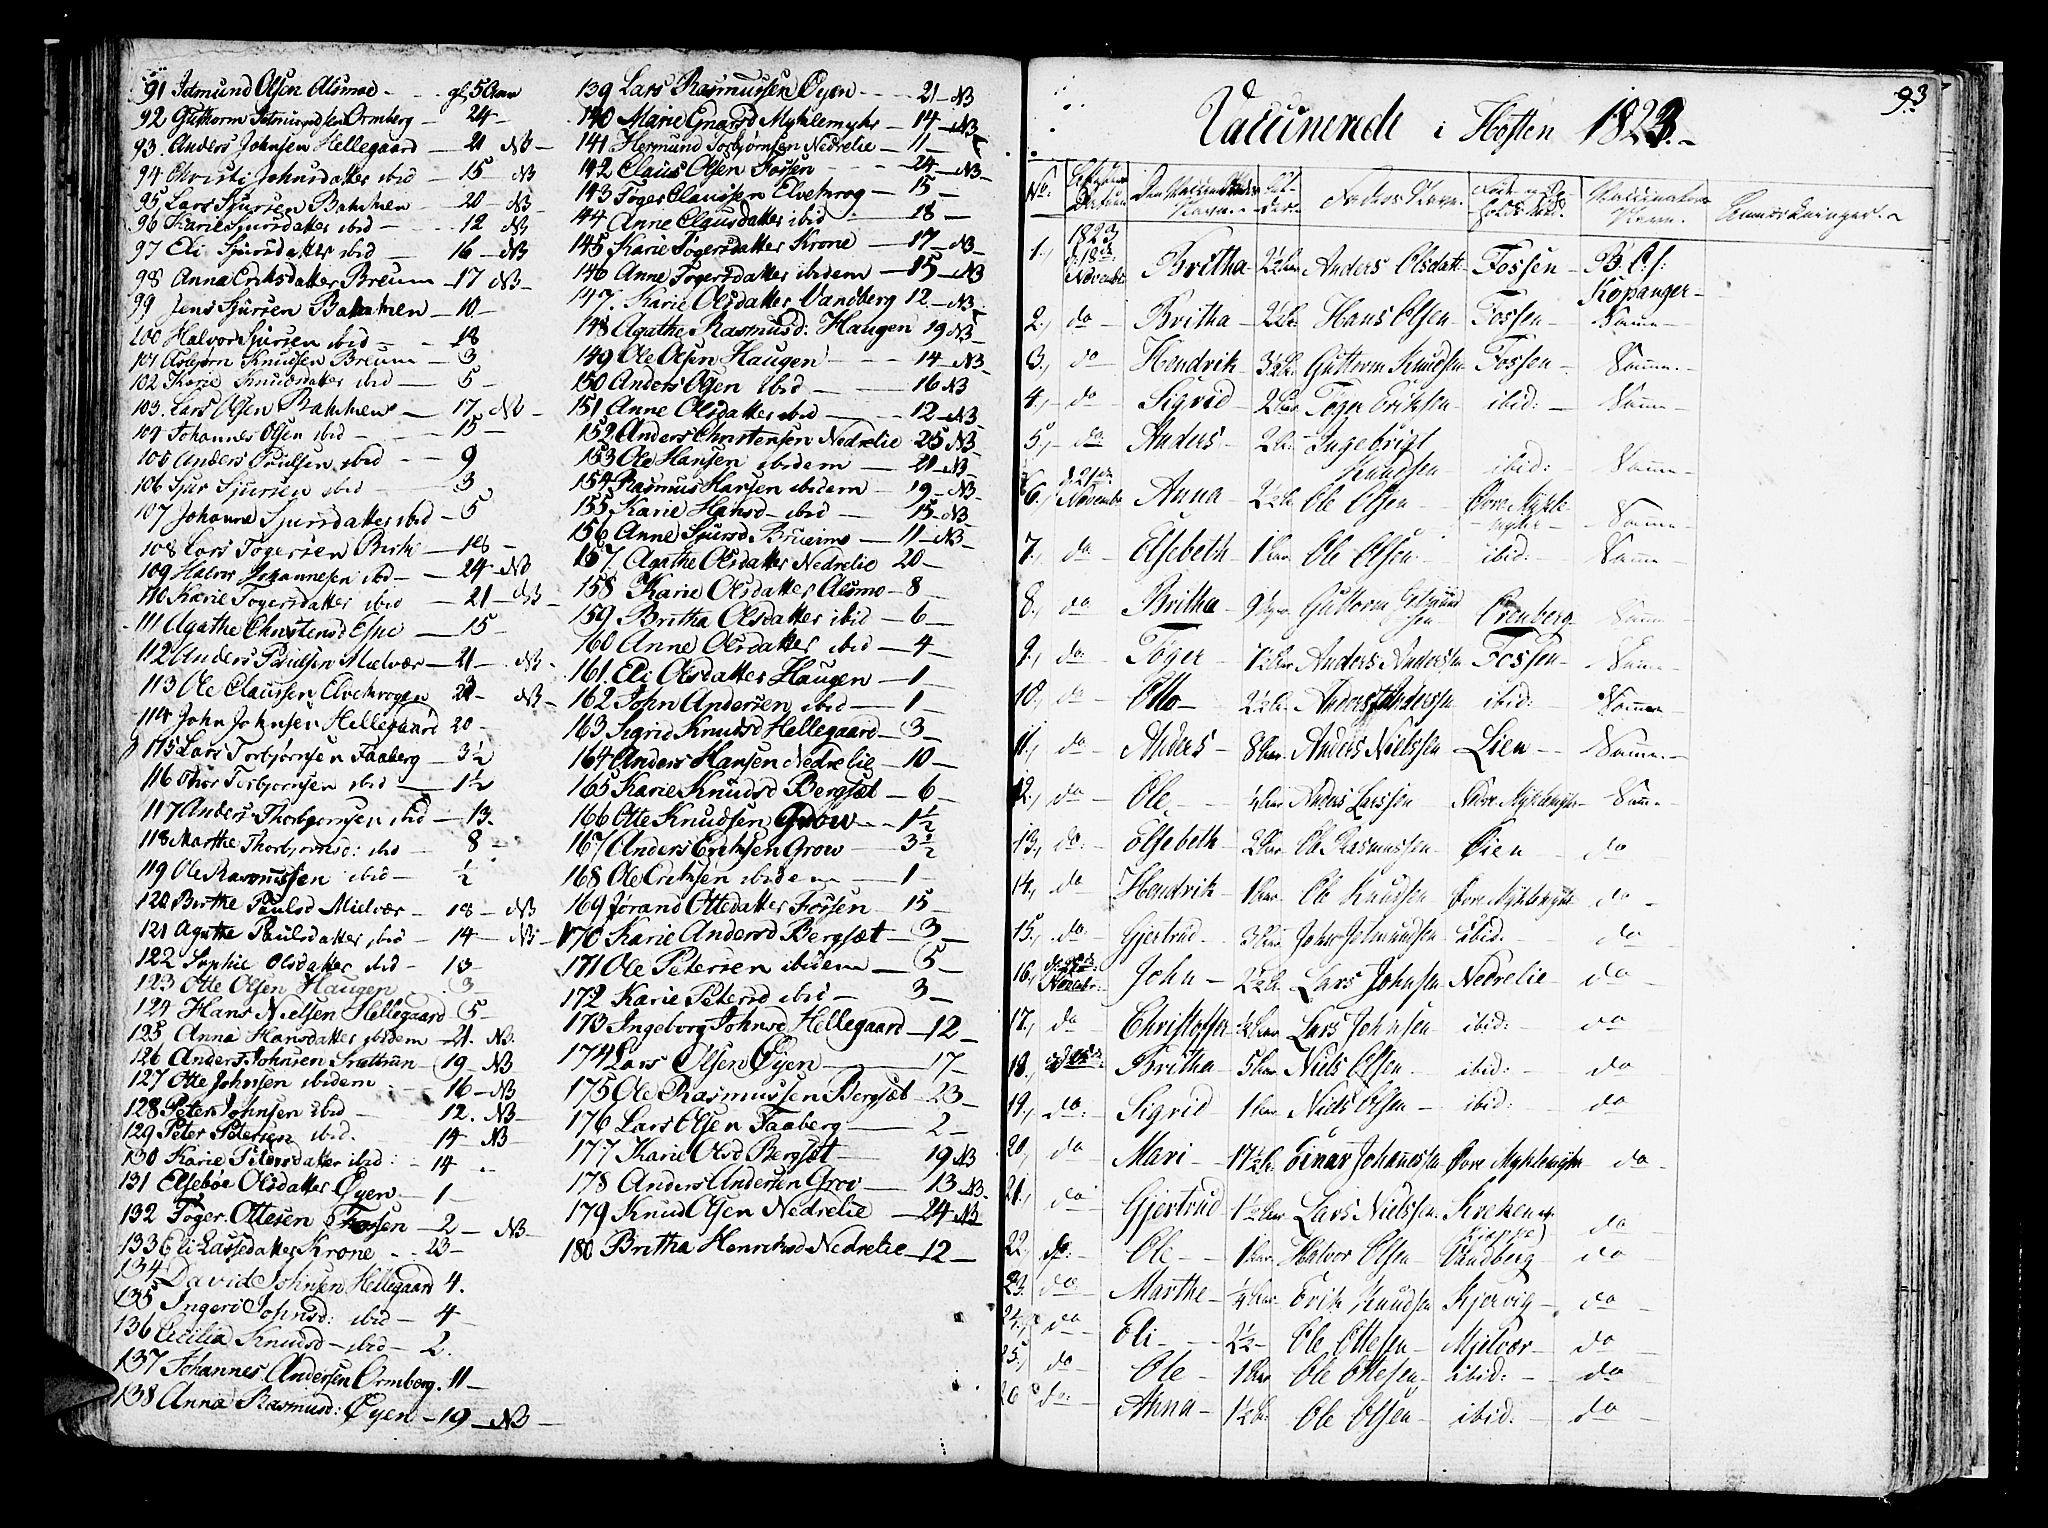 91 Jetmund Olsen Alsmoe - gl. 5 Aar
92 Guttorm Jetmundsen Ormberg - 24 -
93. Anders Johnsen Hellegaard - 21 NB -
94 Christi Johnsdatter ibid - 15 NB
95 Lars Sjursen Bahmen - 20 - NB -
96 Karie Sjursdatter ibid - 12 NB
97 Eli Sjursdatter ibid - 16 - NB
98 Anna Eriksdatter Breum - 17 NB -
99 Jens Sjursen Bahmen - 10 -
100 Halvor Sjursen ibid - 18
101 Asbjørn Knudsen Breum - 3
102 Karie Knudsdatter ibid - 5 -
103. Lars Olsen Bahmen - 17 NB -
104 Johannes Olsen ibid - 15 -
105 Anders ibid - 9
106 Sjur Sjursen ibid - 3
107 Johanne Sjursdatter ibid - 5
108 Lars Tøgersen - 18 -
109 Halvor Johannesen ibid - 24 - NB
110 Karie Tøgersdatter ibid - 21 - NB -
111 Agathe Christensd Espe - 15 -
112 Anders Paulsen Mielvær - 21 - NB -
113 Ole Claussen Elvekrogen 21 - NB -
114 John Johnsen Hellegaard 20 -
115 Lars Torbjørnsen Faaberg - 3½
116 Torbjørnsen ibid - 1½
117 Anders Thorbjørnsen ibid - 13.
118 Marthe Thorbjørnsd: ibid - 8 -
119 Ole Rasmussen ibid - ½
120 Birthe Paulsd Mielvær - 18 - NB
121 Agathe Paulsdatter ibid - 14 - NB -
122 Sophie Olsdatter ibid - 13 -
123 Otte Olsen Haugen - 3 -
124 Hans Nielsen Hellegaard 5 -
125 Anna Hansdatter ibidem - 21. NB.
126 Anders Johnsen - 19 - NB
127 Otte Johnsen ibidem - 16 - NB
128 Peter Johnsen ibid - 12. NB -
129 Peter Petersen ibid. 14 NB -
130 Karie Petersdatter ibid: - 14 -
131 Elsebøe Olsdatter Øyen - 1 -
132 Tøger Ottesen Fossen - 2 - NB -
133 Eli Lassedatter Krone - 23 -
134 David Johnsen Hellegaard 4.
135 Johnsd: ibid - 4 -
136 Cecilia Knudsd - ibid - 2.
137 Johannes Andersen Ormberg. 11 -
138 Anna Rasmusd: Øyen - 19 - NB -
139 Lars Rasmussen Øyen - 21 - NB
140 Marie Myklemyhr - 14 - NB
141 Hermund Torbjørnsen Nedrelie - 11 -
142 Claus Olsen Fossen - 24 - NB -
143 Tøger Claussen Elvekrog - 15 -
144 Anne Clausdatter ibid - 18 -
145 Karie Tøgersdatter Krone - 17 - NB
146 Anne Tøgersdatter ibidem - 15 - NB
147 Karie Olsdatter Vandberg 12 - NB -
148 Agathe Rasmusd: Haugen 19 NB -
149 Ole Olsen Haugen - 14 - NB
150 Anders Olsen ibid - 16 NB
151 Anne Olsdatter ibid - 12 - NB -
152 Anders Christensen Nedrelie 25 NB -
153 Ole Hansen ibidem - 21 - NB -
154 Rasmus Hansen ibidem - 19 - NB -
155 Karie Hansd - ibid - 15 - NB -
156 Anne Sjursd Brueim - 11 - NB -
157 Agathe Olsdatter Nedrelie 20 -
158 Karie Olsdatter Alsmo - 8 -
159 Britha Olsdatter ibid - 6 -
160 Anne Olsdatter ibid - 4 -
161. Eli Olsdatter Haugen - 1 -
162 John Andersen ibid - 1 -
163 Sigrid Knudsd Hellegaard - 3 -
164 Anders Hansen Nedrelie - 10 -
165 Karie Knudsd Bergsæt - 6 -
166 Otte Knudsen Grow - 1½
167 Anders Eriksen Grow - 3½
168 Ole Eriksen ibidem - 1 -
169 Jorand Ottedatter Fossen - 15 -
170 Karie Andersd Bergsæt - 3 -
171 Ole Petersen ibidem - 5 -
172 Karie Petersd ibid - 3 -
173 Ingeborg Johnsd Hellegaard - 12 -
174 Lars Olsen Øyen - 17 -
175 Ole Rasmussen Bergsæt - 23 -
176 Lars Olsen Faaberg - 2 -
177 Karie Olsd Bergsæt - 19 NB
178 Anders Andersen Grov - 13 NB -
179 Knud Olsen Nedrelie - 24 NB
180 Britha Henriksd Nedrelie - 12 -
93
Vaccinerede i Høsten 1823. -
No: Den Vaccineredes Navn. - Alder. Faders Navn. Føde og Opholds Sted. Vaccinateurs Navn. Anmærkninger. -
1823
1., d: 18de November Britha - 2½ Aar Anders Olsdatt - Fossen - B. C. s: Kopanger -
2., do - Britha - 2½ Aar Hans Olsen - Fossen - Samme -
3., do - Hendrik - 3½ Aar Guttorm Knudsen - Fossen - Samme. -
4., do - Sigrid - 2 Aar Tøger Eriksen - ibid: - Samme -
5., do - Anders - 2 Aar Ingebrigt Knudsen - ibid: Samme -
6., d 21de November Anna - 2½ Aar Ole Olsen - Øvre Myklemyhr - Samme -
7., do - Elsebeth - 1 Aar Ole Olsen - ibid: - Samme -
8., do - Britha - 9 Aar Guttorm Jetmundsen Ormberg - Samme -
9., do Tøger - 7½ Aar Anders Andersen Fossen - Samme -
10., do - Otto - 2½ Aar Anders Andersen ibid: - Samme
11., do Anders - 8 Aar Anders Nielssen Lien - Samme. -
12., do - Ole - ¼ Aar Anders Larssen Nedre Myklemyhr - Samme -
13., do: - Elsebeth - 2 Aar Ole Rasmussen - Øien - do
14., do - Hendrik - 1 Aar Ole Knudsen Øvre Myklemyhr do -
15., do Gjertrud - 3 Aar John Jetmundsen - ibid: - do -
16., November: John - 2½ Aar Lars Johnsen Nedrelie - do
17., do Christoffer ¼ Aar Lars Johnsen ibid: - do
18., Britha - 5 Aar Niels Olsen - ibid: - do
19., do: Sigrid 1 Aar Niels Olsen - ibid: do
20., do Mari - 17½ Aar Einar Johannessen Øvre Myklemyhr do -
21., do Gjertrud 1½ Aar Lars Nielssen. do -
22., do: Ole - 1 Aar Halvor Olsen Vandberg - do
23., do Marthe - ¼ Aar Erik Knudsen Kjervig - do -
24., do Eli - 2½ - Ole Ottesen - Mjelvær - do -
25., do Ole - 1 Aar Ole Ottesen - ibid: - do -
26 do: Anna - 1½ Aar Ole Olsen - ibid: - do -